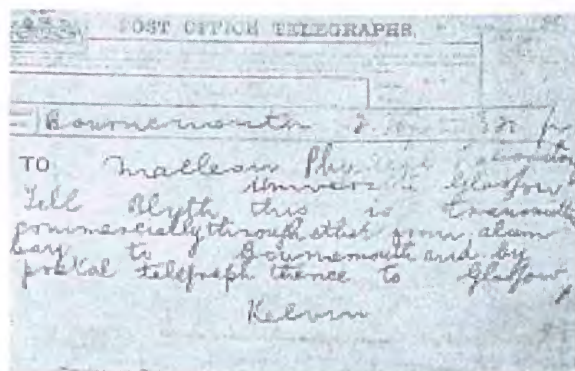 POST OFFICE TELEGRAPHS.
Bournemouth
TO Maclean
University Glasgow
Tell Blyth this is transmitted
commercially through ether from alum
bay to Bournemouth and by
postal telegraph thence to Glasgow
Kelvin